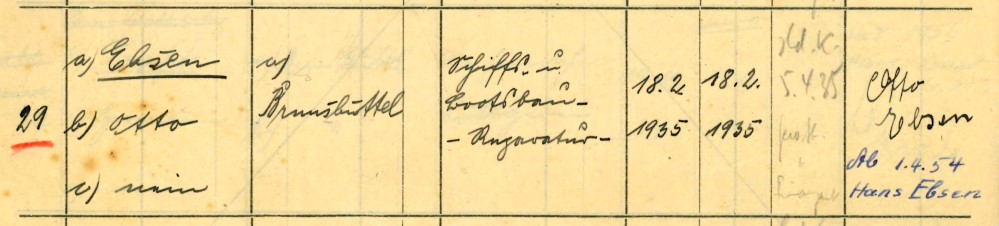 29
a) Ebsen
b) Otto
c) nein
a)
Brunsbüttel
Schiffs- u
Bootsbau-
- Reparatur -
18.2.
1935
18.2.
1935
5.4.35
Otto
Ebsen
Ab 1.4.54
Hans Ebsen